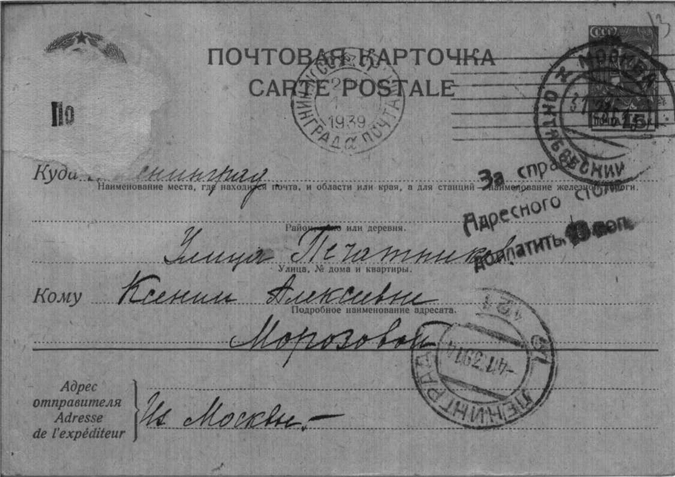 13
СССР
ПОЧТОВАЯ КАРТОЧКА
CARTE POSTALE
По
МОСКВА
1939
ЛЕНИНГРАД ПОЧТАМТ
Куда Ленинград
Наименование места, где находится почта, и области или края, а для станций — наименование железной дороги.
За спра
Адресного стола
доплатить коп.
Район, село или деревня.
Улица Печатников
Улица, № дома и квартиры.
Кому Ксении Алексевне
Подробное наименование адресата.
Морозовой
ЛЕНИНГРАД
Адрес
отправителя
Adresse
de l'expéditeur
Из Москвы.-